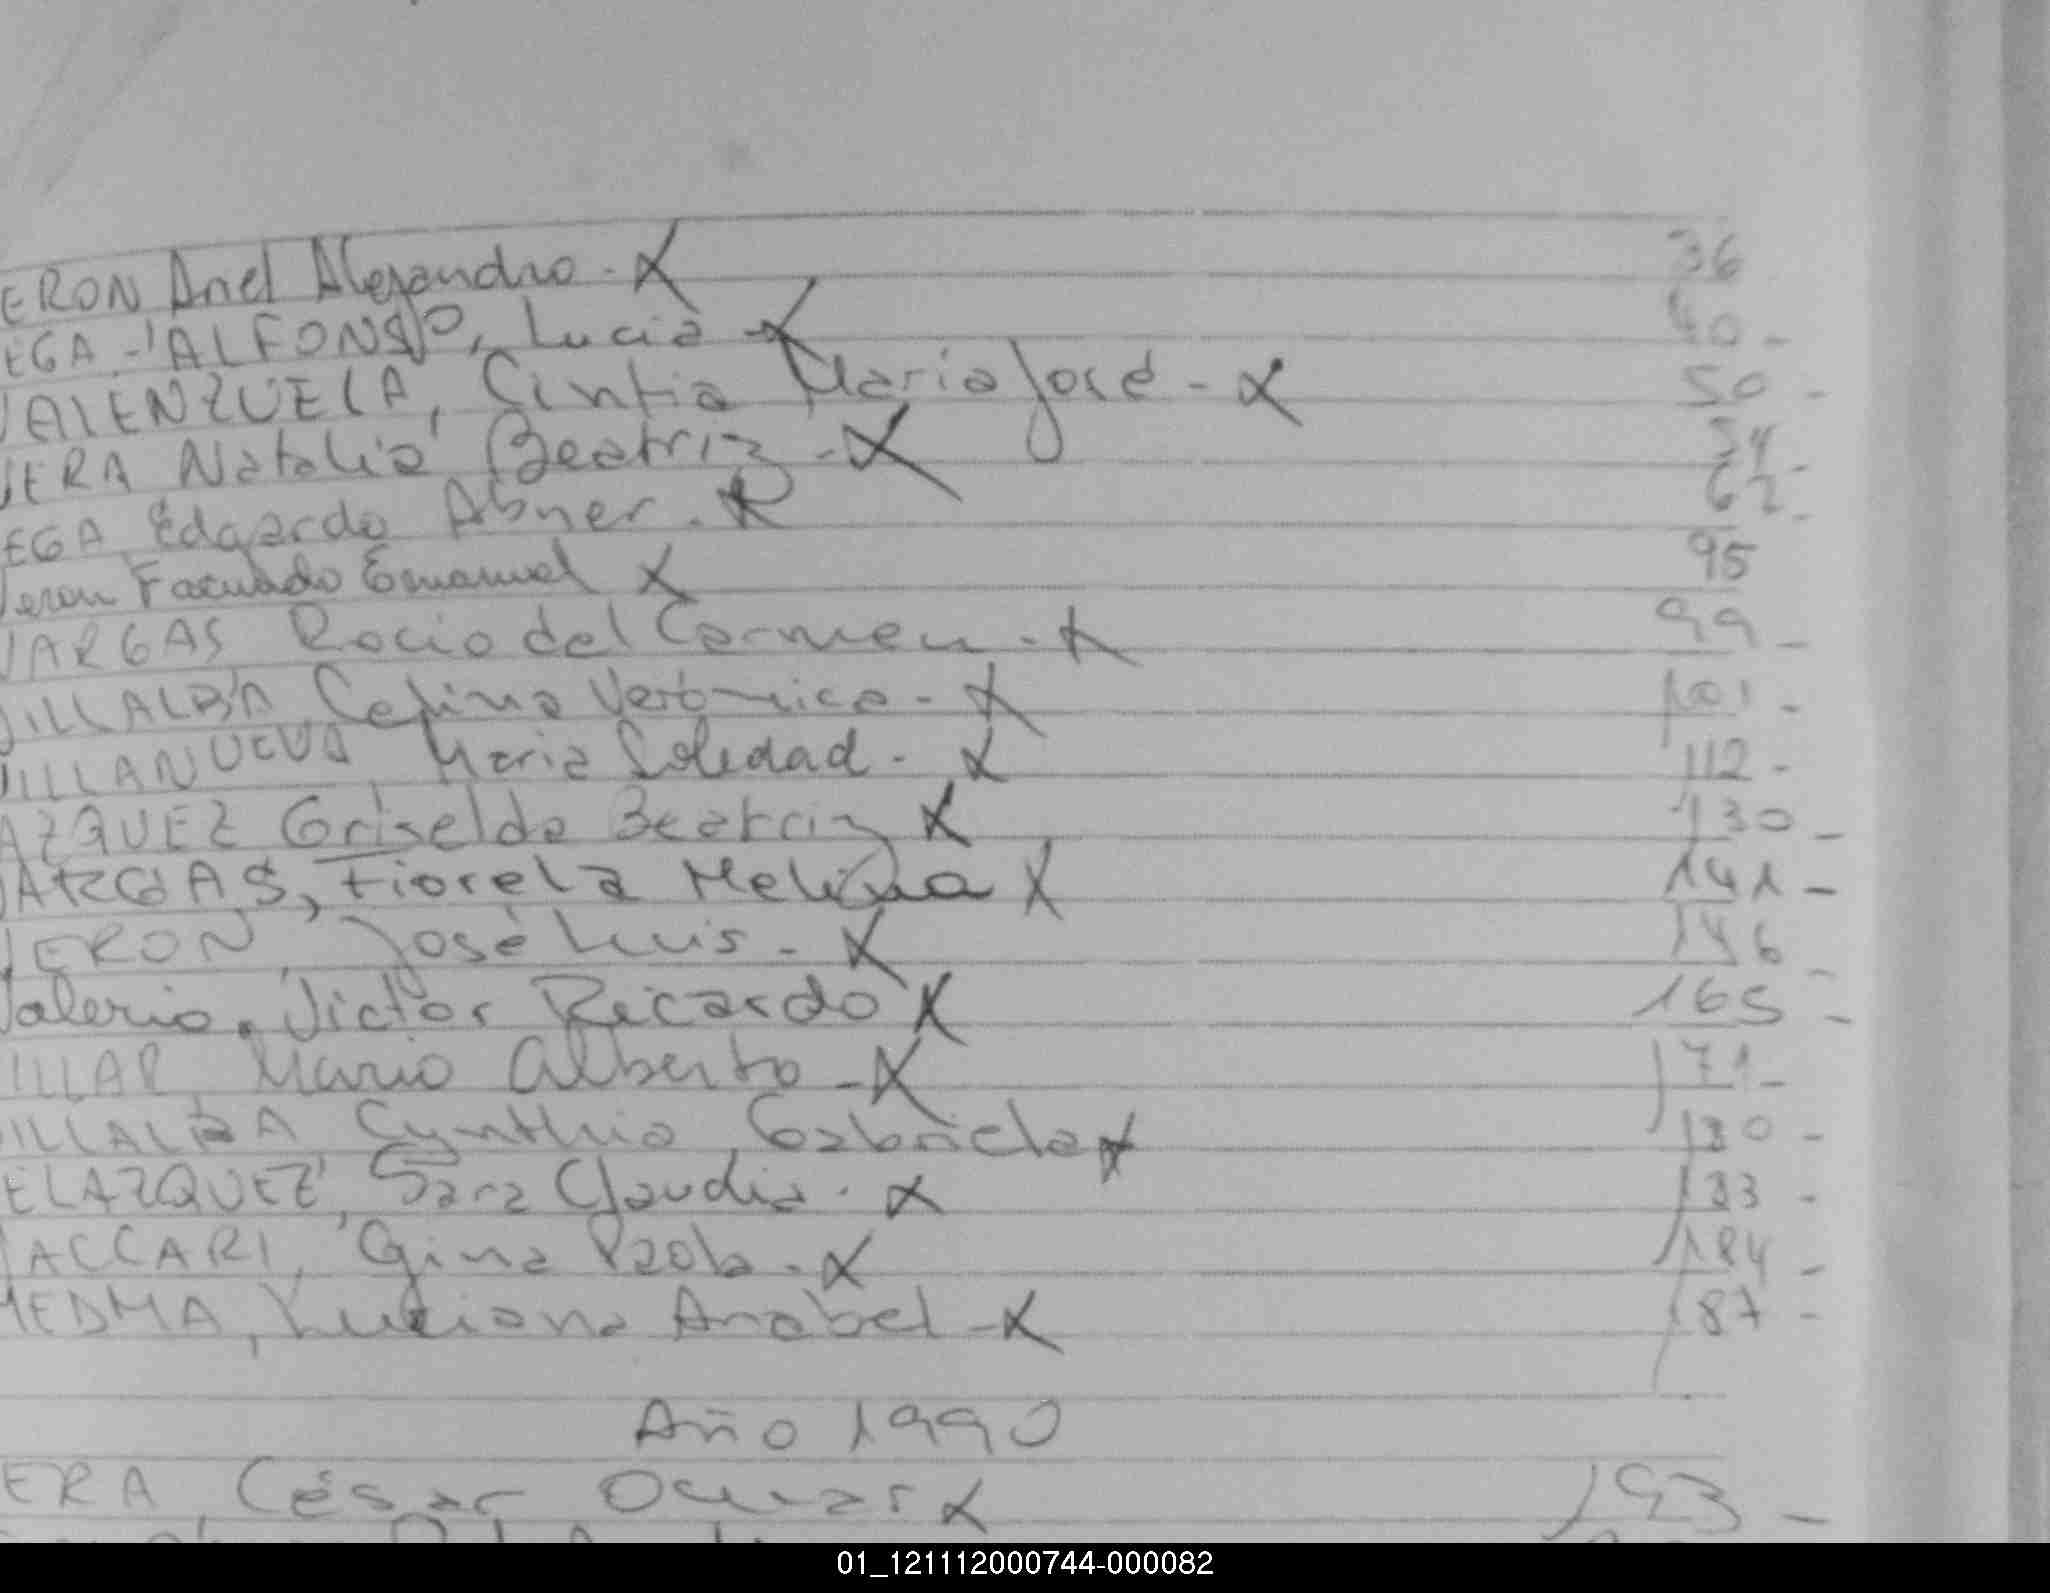 ERON Ariel Alejandro - X 36
EGA - ALFONSO, Lucia - X 40 -
VALENZUELA, Cintia María José - X 50 -
VERA Natalia Beatriz - X 54 -
EGA Edgardo Abner - X 62 -
Veron Facundo Emanuel X 95
VARGAS Rocio del Carmen - X 99 -
VILLALBA Celina Verónica - X 101 -
VILLANUEVA María Soledad - X 112 -
AZQUEZ Griselda Beatriz X 130 -
VARGAS, Fiorela Melina X 141 -
VERON, José Luis - X 146 -
Valerio, Victor Ricardo X 165 -
ILLAR Mario Alberto - X 171 -
VILLALBA Cynthia Gabriela X 180 -
ELAZQUEZ, Sara Claudia - X 183 -
VACCARI, Gina Paola - X 184 -
Luciana Anabel - X 187 -
Año 1990
ERA César Omar X 193 -
01_121112000744-000082